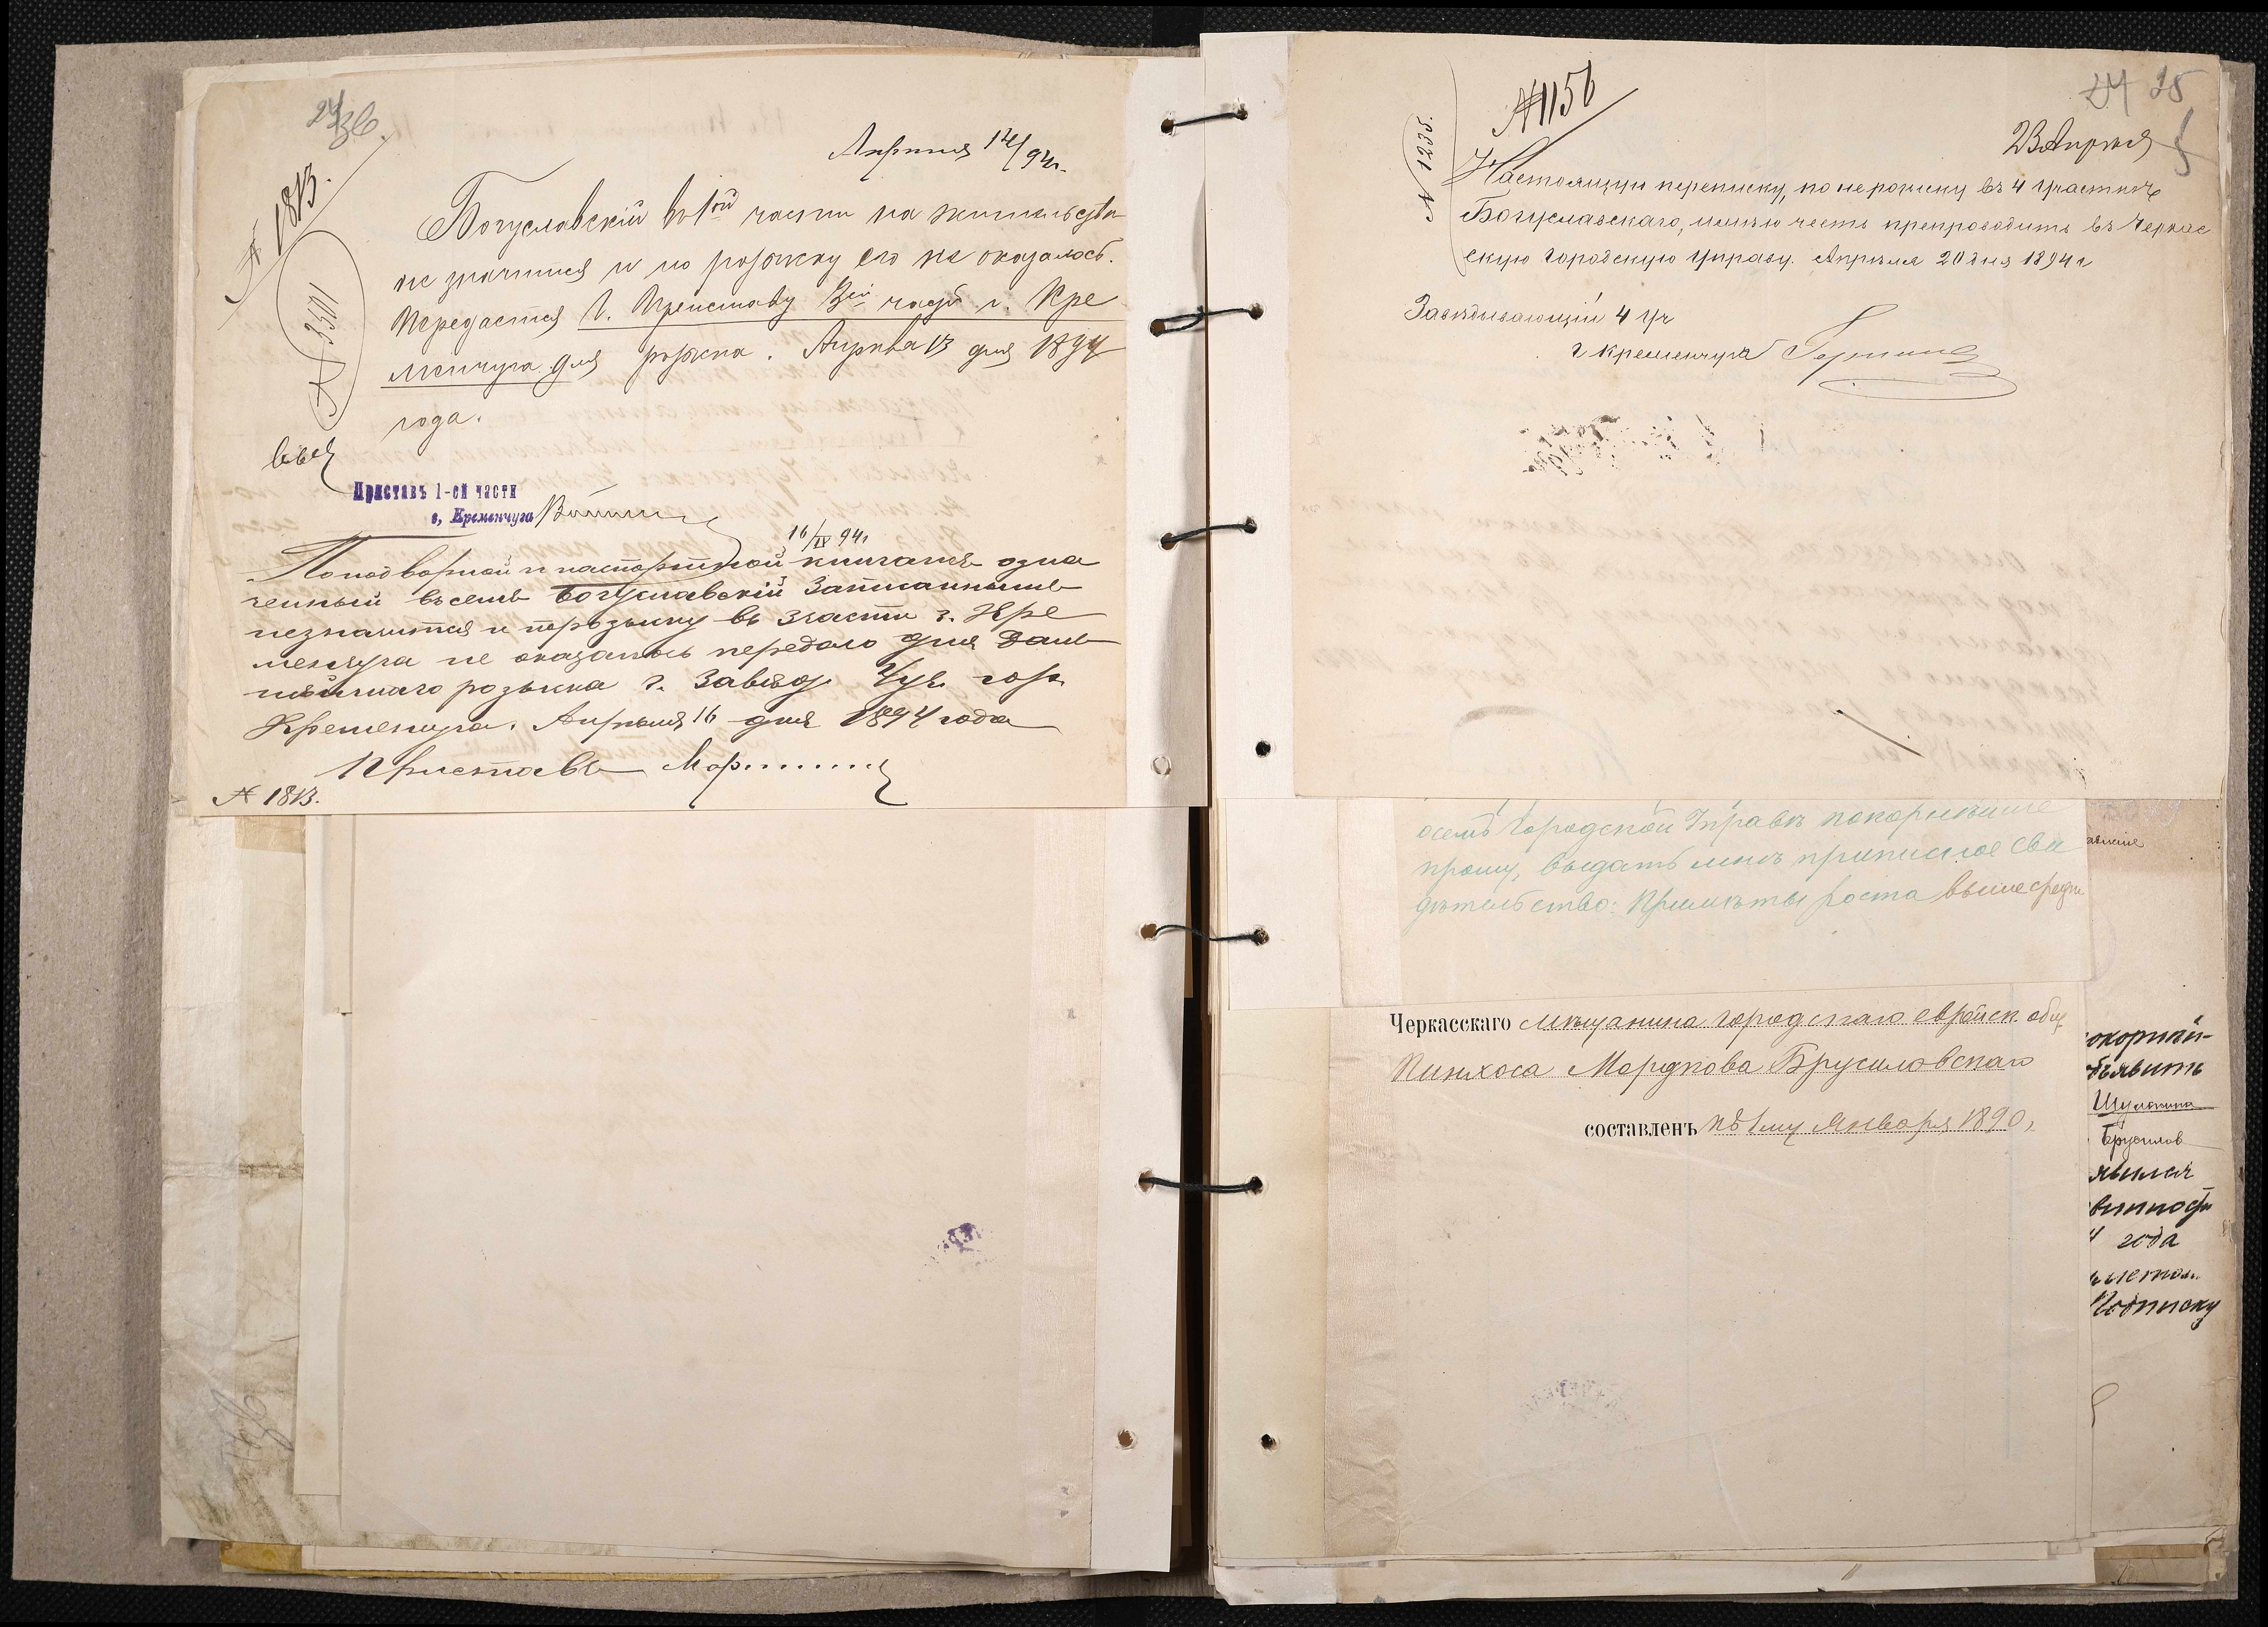 24 об.
№ 1813.
№ 3501
Апрѣля 12/94 г.
Богуславскій въ 1ой части на жительствѣ
не значится и по розыску его не оказалось.
Передается Г. Приставу 3ей части г. Кре
менчуга для розыска. Апрѣля 13 дня 1894
года.
Приставъ 1-ой части
г. Кременчуга
16/IV 94 г
По подворной и паспортной книгамъ озна
ченный въ семъ Богуславскій записаннымъ
незначится и порозыску въ 3 части г. Кре
менчуга не оказалось передаю для даль
нѣйшаго розыска г. Завѣд. 4 уч. гор.
Кременчуга. Апрѣля 16 дня 1894 года
Приставъ
№ 1813.
24 25
№ 1156
№ 1235.
23 Апрѣля
Настоящую переписку, по нерозыску въ 4 участкѣ
Богуславскаго, имѣю честь препроводить въ Черкас
скую Городскую Управу. Апрѣля 20 дня 1894 г
Завѣдывающій 4 уч
г Кременчуга
Городской Управѣ покорнѣйше
прошу, выдать мнѣ приписное сви
дѣтельство: Примѣты роста выше средн
Черкасскаго мѣщанина городскаго еврейск. общ.
Пинхоса Мордкова Брусиловскаго
составленъ къ 1му Января 1890,
окорнѣй-
бъявить
Шулимина
Брусилов
явился
винност
4 года
Подписку